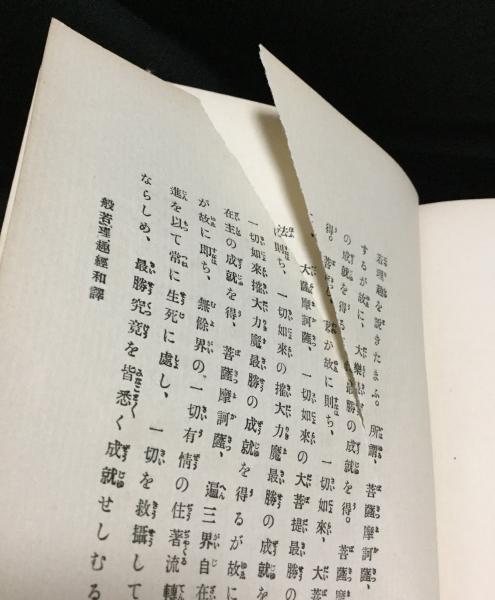 若理趣を説きたまふ。所謂、菩薩摩訶薩、
するが故に、大樂
の成就を得る 最勝の成就を得。菩薩摩
得。菩 が故に則ち、一切如來、大菩
大薩摩訶薩、一切如來の大菩提最勝の
法 則ち、一切如來の摧大力魔最勝の成就を
一切如來摧大力魔最勝の成就を
在主の成就を得、菩薩摩訶薩、遍三界自在
が故に即ち、無餘界の一切有情の住著流轉
進を以て常に生死に處し、一切を救攝して
ならしめ、最勝究竟を皆悉く成就せしむる
般若理趣經和譯